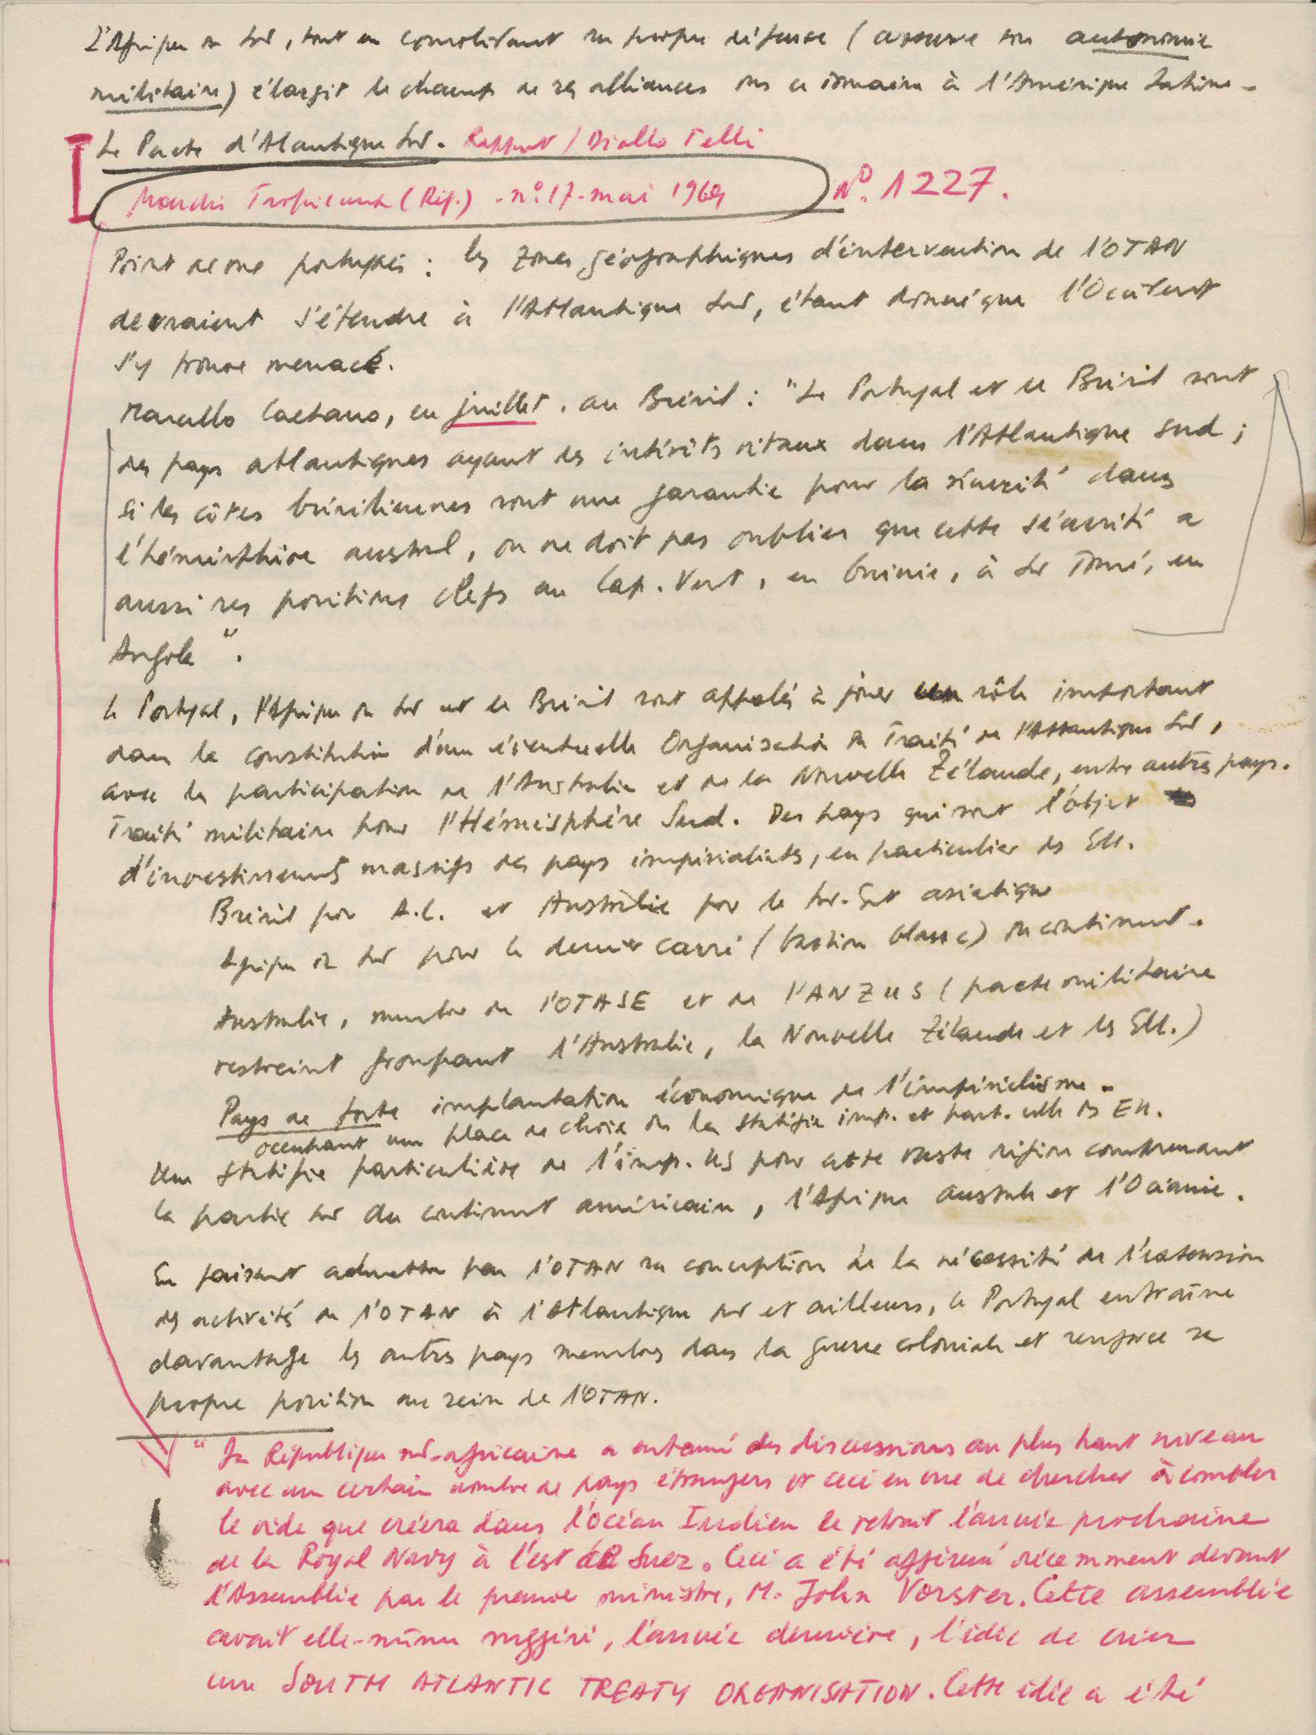 L'Afrique du Sud, tout en consolidant sa propre défense (assure son autonomie
militaire) élargit le champ de ses alliances ds ce domaine à l'Amérique Latine.
Le Pacte d'Atlantique Sud. Rapport / Diallo Telli
Marchés Tropicaux (Réf.) - nº 17 - mai 1969 Nº. 1227.
Point de vue portugais : les zones géographiques d'intervention de l'OTAN
devraient s'étendre à l'Atlantique Sud, étant donné que l'Occident
s'y trouve menacé.
Marcello Caetano, en juillet, au Brésil : "Le Portugal et le Brésil sont
des pays atlantiques ayant des intérêts vitaux dans l'Atlantique Sud ;
si les côtes brésiliennes sont une garantie pour la sécurité dans
l'hémisphère austral, on ne doit pas oublier que cette sécurité a
aussi ses positions clefs au Cap-Vert, en Guinée, à S. Tomé, en
Angola".
Le Portugal, l'Afrique du Sud et le Brésil sont appelés à jouer un rôle important
dans la constitution d'une éventuelle Organisation du Traité de l'Atlantique Sud,
avec la participation de l'Australie et de la Nouvelle Zélande, entre autres pays.
Traité militaire pour l'Hémisphère Sud. Des pays qui sont l'objet
d'investissements massifs des pays impérialistes, en particulier des EU.
Brésil pour A.L. et Australie pour le Sud-Est asiatique
Afrique du Sud pour le dernier carré (bastion blanc) du continent.
Australie, membre de l'OTASE et de l'ANZUS (pacte militaire
restreint groupant l'Australie, la Nouvelle Zélande et les EU.)
Pays de forte implantation économique de l'impérialisme.
occupant une place de choix ds la stratégie imp. et part. celle des EU.
Une stratégie particulière de l'imp. US pour cette vaste région comprenant
la partie sud du continent américain, l'Afrique australe et l'Océanie.
En faisant admettre par l'OTAN sa conception de la nécessité de l'extension
des activités de l'OTAN à l'Atlantique sud et ailleurs, le Portugal entraîne
davantage les autres pays membres dans la guerre coloniale et renforce sa
propre position au sein de l'OTAN.
" La République sud-africaine a entamé des discussions au plus haut niveau
avec un certain nombre de pays étrangers et ceci en vue de chercher à combler
le vide que créera dans l'océan Indien le retrait l'année prochaine
de la Royal Navy à l'est de Suez. Ceci a été affirmé récemment devant
l'Assemblée par le premier ministre, M. John Vorster. Cette assemblée
avait elle-même suggéré, l'année dernière, l'idée de créer
une SOUTH ATLANTIC TREATY ORGANISATION. Cette idée a été